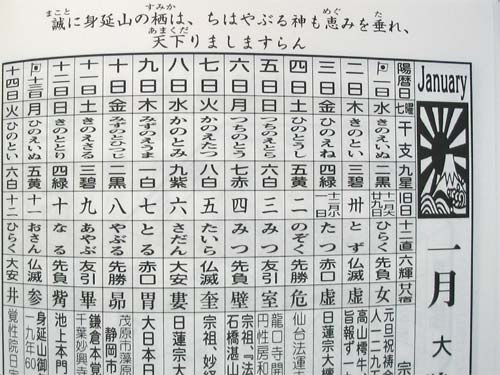 誠に身延山の栖は、ちはやぶる神も恵みを垂れ、
天下りましますらん
January
一月 大
陽暦日 七曜 干支 九星 旧日 十二直 六輝 廿八宿
一日 水 きのえいぬ 二黒 ひらく 先負 女 元旦祝禱
二日 木 きのとい 三碧 卅 とず 仏滅 虚 高山樗牛
三日 金 ひのえね 四緑 一日 たつ 赤口 虚 日蓮宗大
四日 土 ひのとうし 五黄 二 のぞく 先勝 危 仙台法運
五日 日 つちのえとら 六白 三 みつ 友引 室 龍口寺開 円性房和
六日 月 つちのとう 七赤 四 みつ 先負 壁 宗祖、『法 石橋湛山
七日 火 かのえたつ 八白 五 たいら 仏滅 奎 宗祖、妙
八日 水 かのとみ 九紫 六 さだん 大安 婁 日蓮宗大
九日 木 みずのえうま 一白 七 とる 赤口 胃 大日本日
十日 金 みずのとひつじ 二黒 八 やぶる 先勝 昴 茂原市藻原 静岡市
十一日 土 きのえさる 三碧 九 あやぶ 友引 畢 鎌倉本覚 千葉妙興寺
十二日 日 きのととり 四緑 十 なる 先負 觜 池上本門
十三日 月 ひのえいぬ 五黄 十一 おさん 仏滅 参 身延山御 一九年60
十四日 火 ひのとい 六白 十二 ひらく 大安 井 覚性院日